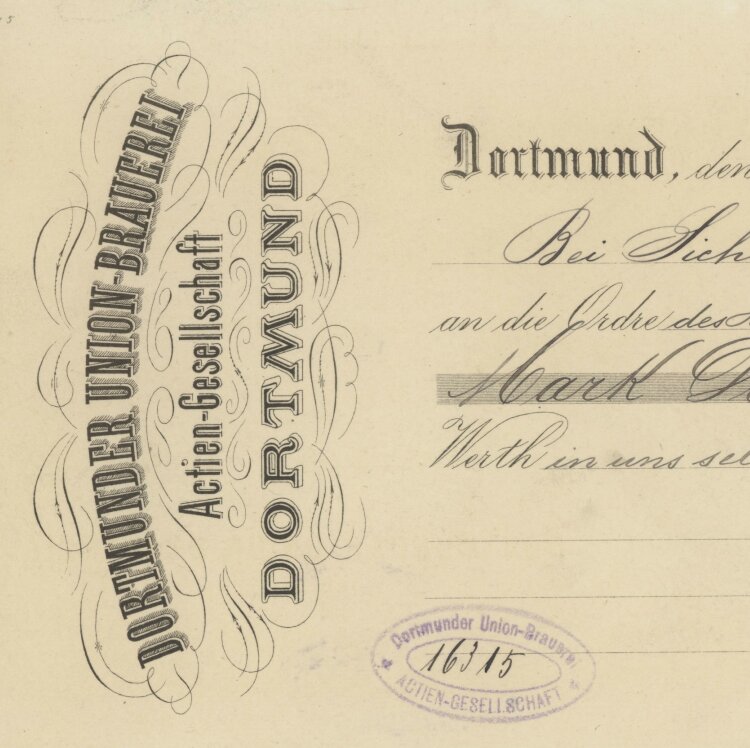 DORTMUNDER UNION-BRAUEREI
Actien-Gesellschaft
DORTMUND
Dortmund, den
Bei Sich
an die Ordre des
Mark
Werth in uns sel
Dortmunder Union-Brauerei
16315
ACTIEN-GESELLSCHAFT